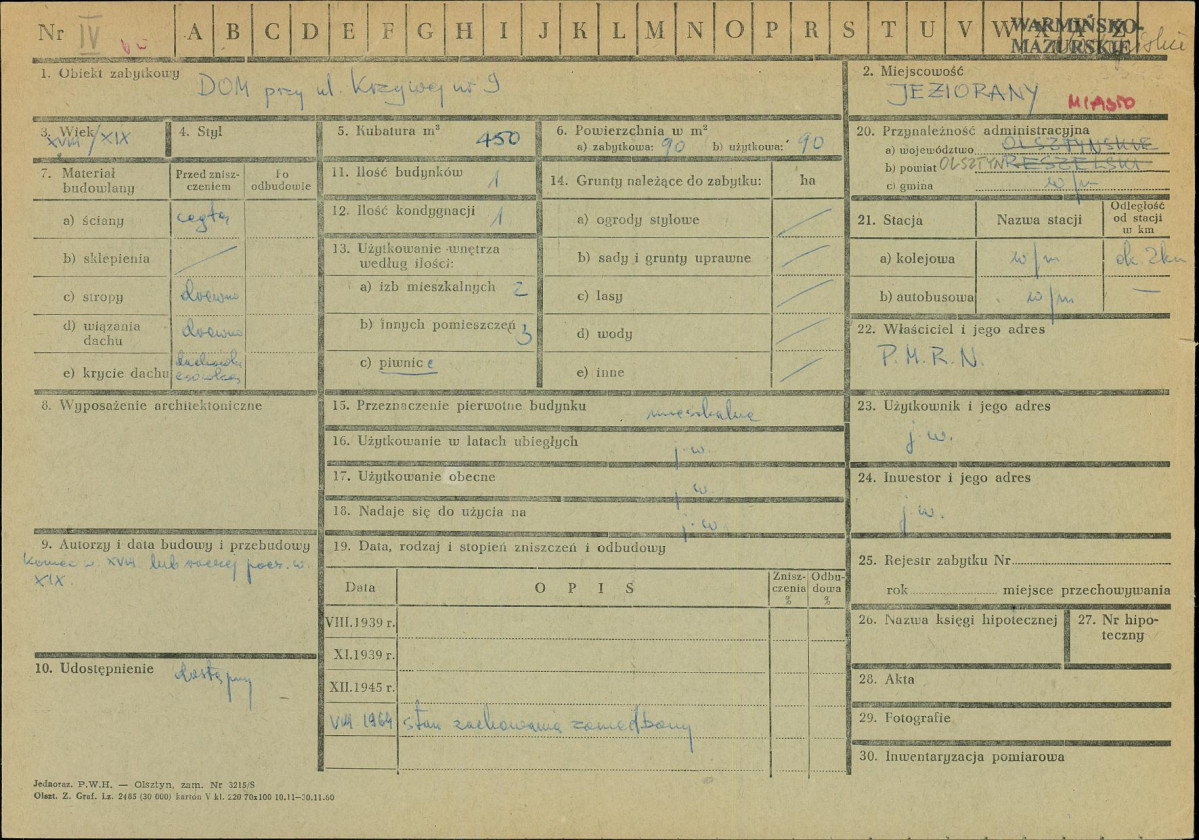 Nr IV A B C D E F G H I J K L M N O P R S T U V W X Y Z
WARMIŃSKO-
MAZURSKIE
1. Obiekt zabytkowy DOM przy ul. Krzywej nr 9
2. Miejscowość
JEZIORANY MIASTO
3. Wiek
XVIII/XIX
4. Styl
5. Kubatura m³ 450
6. Powierzchnia w m²
a) zabytkowa: 90 b) użytkowa: 90
20. Przynależność administracyjna
a) województwo OLSZTYŃSKIE
b) powiat OLSZTYN RESZELSKI
c) gmina w/m
7. Materiał
budowlany
Przed znisz-
czeniem
Po
odbudowie
a) ściany cegła
b) sklepienia
c) stropy drewno
d) wiązania
dachu drewno
e) krycie dachu dachówka
esówka
11. Ilość budynków 1
12. Ilość kondygnacji 1
13. Użytkowanie wnętrza
według ilości:
a) izb mieszkalnych 2
b) innych pomieszczeń 3
c) piwnic e
14. Grunty należące do zabytku: ha
a) ogrody stylowe
b) sady i grunty uprawne
c) lasy
d) wody
e) inne
21. Stacja Nazwa stacji
Odległość
od stacji
w km
a) kolejowa w/m ok. 2km
b) autobusowa w/m —
22. Właściciel i jego adres
P.M.R.N.
8. Wyposażenie architektoniczne
15. Przeznaczenie pierwotne budynku mieszkalne
16. Użytkowanie w latach ubiegłych j.w.
17. Użytkowanie obecne j.w.
18. Nadaje się do użycia na j.w.
23. Użytkownik i jego adres
j.w.
24. Inwestor i jego adres
j.w.
9. Autorzy i data budowy i przebudowy
koniec w. XVIII lub raczej pocz. w.
XIX.
10. Udostępnienie dostępny
19. Data, rodzaj i stopień zniszczeń i odbudowy
Data OPIS
Znisz-
czenia
%
Odbu-
dowa
%
VIII.1939 r.
XI.1939 r.
XII.1945 r.
VIII 1964 stan zachowania zaniedbany
25. Rejestr zabytku Nr
rok miejsce przechowywania
26. Nazwa księgi hipotecznej
27. Nr hipo-
teczny
28. Akta
29. Fotografie
30. Inwentaryzacja pomiarowa
Jednoraz. P.W.H. — Olsztyn, zam. Nr 3215/S
Olszt. Z. Graf. Lz. 2485 (30 000) karton V kl. 220 70x100 10.11—30.11.60